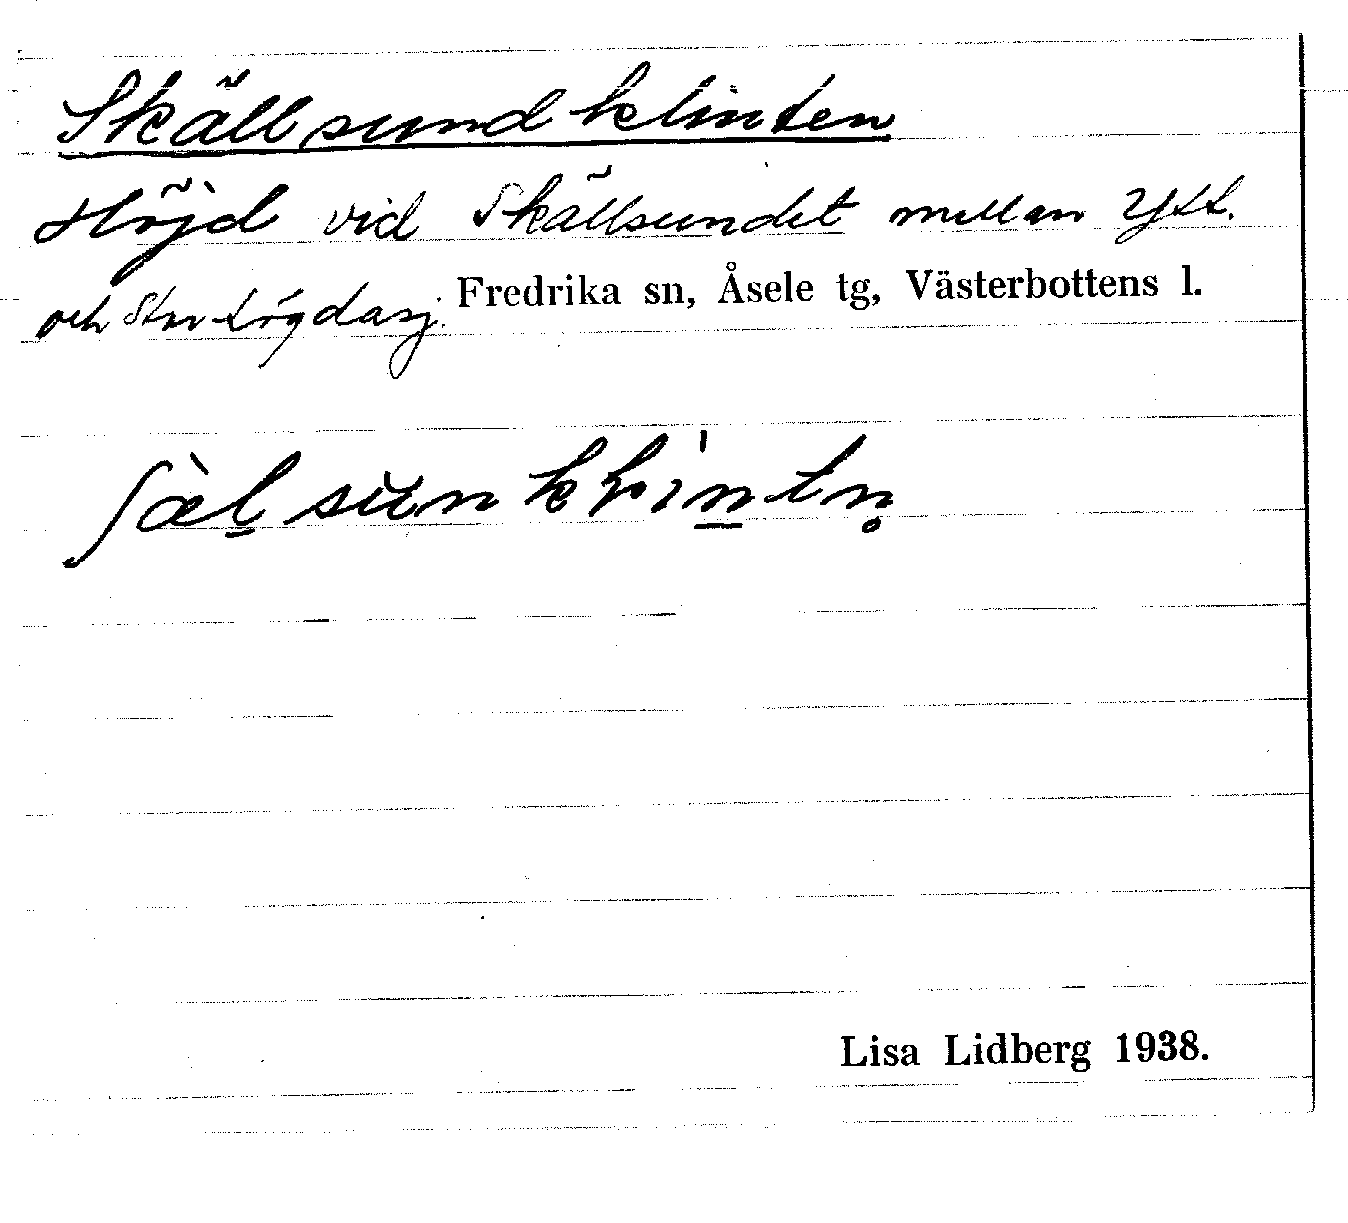 Skällsundklinten
Höjd vid Skällsundet mellan Ytt.
och Stor-Lögdasj. Fredrika sn, Åsele tg, Västerbottens l.
Lisa Lidberg 1938.